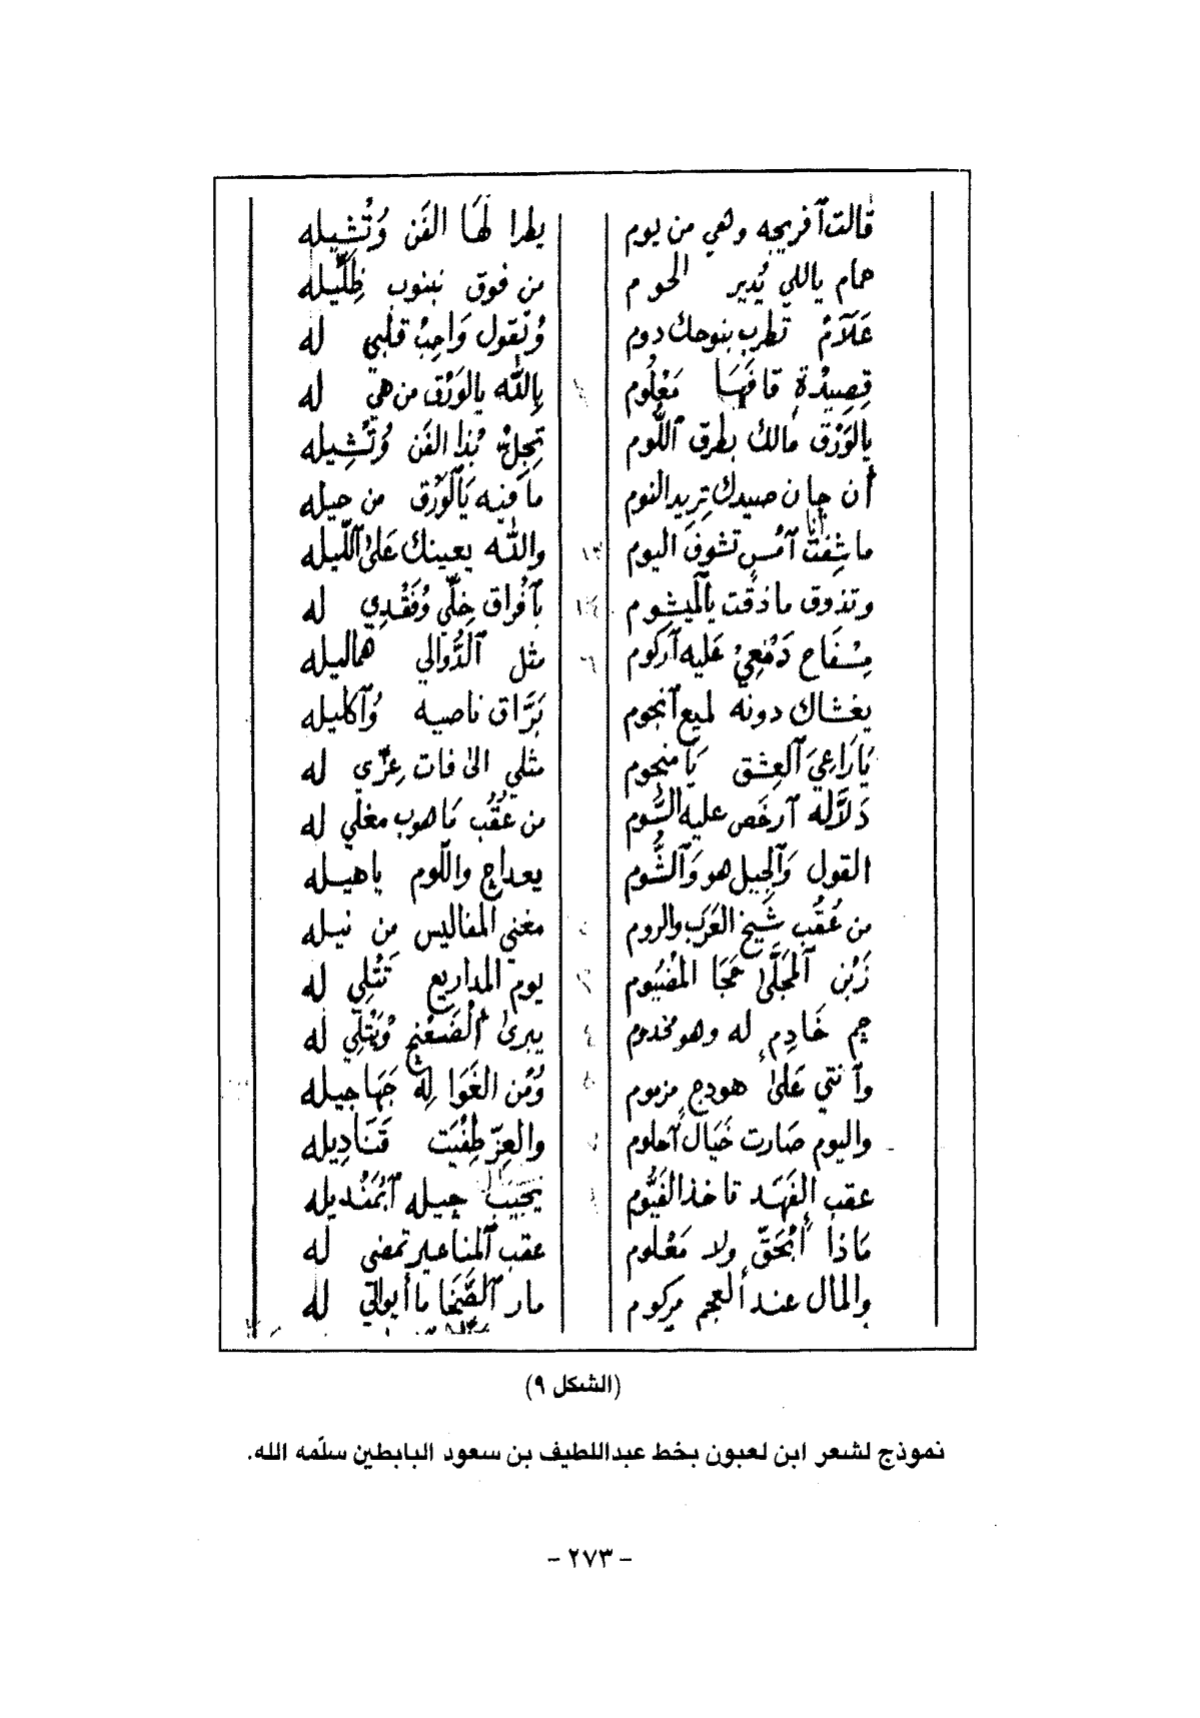 قالت آفريجه وهي من يوم يطرا لَهَا الفَن وُتْشِيله
حمام ياللي يُدير الحوم من فوق نبنوب ظِلِّيله
عَلَامْ تطرب بنوحك دوم وُتقول وَاحِبْ قلبي له
قِصِيدْة قافَهَا مَعْلُوم بِالله يالوَرْق من هي له
يالوَرْق مالك بطرق اللُّوم تِجِلْ بْذا الفَن وُتْشِيله
أن جان صيدك تريد النوم ما فيه يَالْوَرْق من حيله
ما شِفْتْ أنا آمْس تشوف اليوم والله يعينك عَلَىٰ اللّيله
وتذوق ما ذقت يالميشوم بآفْراق خِلّي وُفَقْدِي له
مِسْفَاح دَمْعِيْ عَليه آركوم مثل الدُّوالي هماليله
يغشاك دونه لميع آنجوم بَرَّاق ناصيه وُآكليله
يَارَاعِيَ العِشق يَا منجوم مثلي الىٰ فات عِزّي له
دَلاَّله آرخَص عليه السُّوم من عُقُب مَاهوب مغلي له
القول وَالحِيل هو وَالشُّوم يعداج واللّوم ياهيله
من عُقُب شَيخ العَرَب والروم مغني المفاليس مِن نيله
زَبْن المجَلَّىٰ حَجَا المضْيُوم يوم المداريع تَتْلِي له
جم خَادِمٍ له وهو مخدوم يبرىٰ الضّعْنِ وْيَتْلِي له
وآنتي عَلَىٰ هودجٍ مزموم وُمْن الغَوَا لِه جَهَاجيله
واليوم صَارت خَيَال آحلوم والعِزّ طِفْيَت قَنَادِيله
عقب الفَهَد تاخذ الفَيُّوم يَجيب جيله آبْمَنْديله
مَاذا أبْحَقّ ولا مَعْلوم عقب المناعير تمضي له
والمال عند العجم مركوم مار السَّخَا ما أيواتي له
(الشكل ٩)
نموذج لشعر ابن لعبون بخط عبداللطيف بن سعود البابطين سلّمه الله.
- ٢٧٣ -